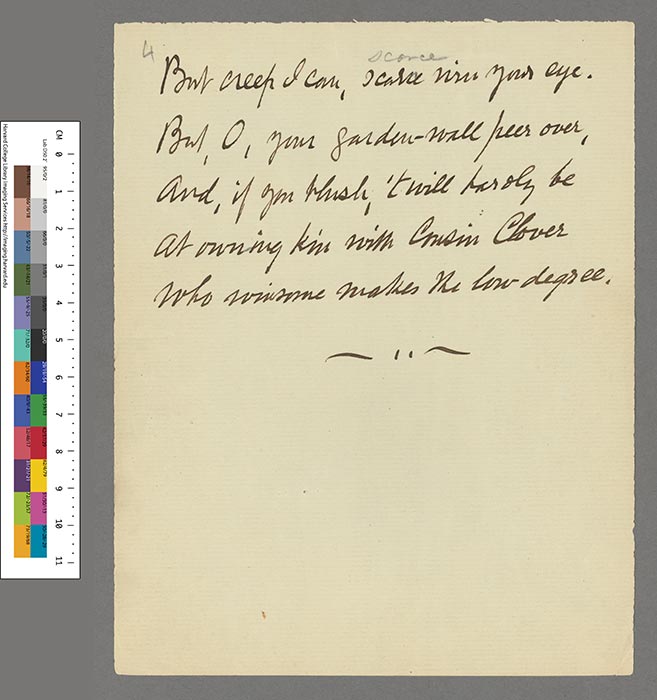 4
scarce
But creep I can, scarce win your eye.
But, O, your garden-wall peer over,
And, if you blush, 't will hardly be
At owning kin with Cousin Clover
Who winsome makes the low degree.
CM 0 1 2 3 4 5 6 7 8 9 10 11
Harvard College Library Imaging Services http://imaging.harvard.edu